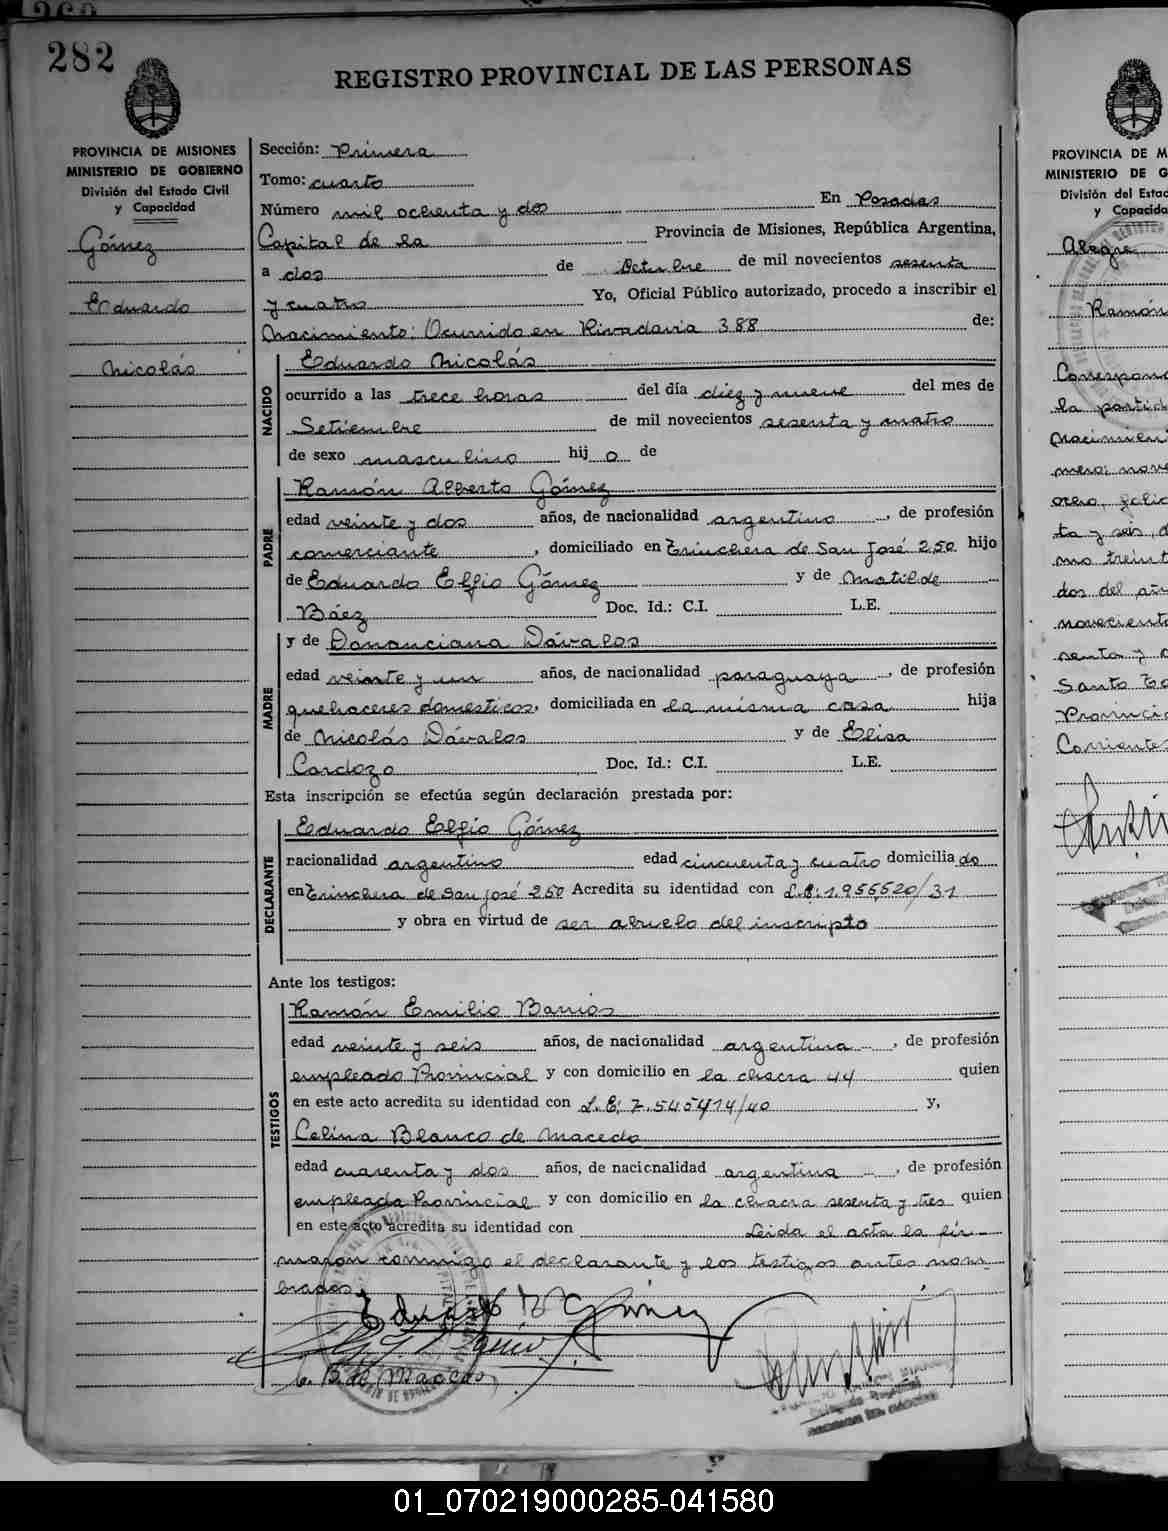 282
REGISTRO PROVINCIAL DE LAS PERSONAS
PROVINCIA DE MISIONES
MINISTERIO DE GOBIERNO
División del Estado Civil
y Capacidad
Gómez
Eduardo
Nicolás
Sección: Primera
Tomo: cuarto
Número mil ochenta y dos En Posadas
Capital de la Provincia de Misiones, República Argentina,
a dos de Octubre de mil novecientos sesenta
y cuatro Yo, Oficial Público autorizado, procedo a inscribir el
Nacimiento: Ocurrido en Rivadavia 388 de:
NACIDO
Eduardo Nicolás
ocurrido a las trece horas del día diez y nueve del mes de
Setiembre de mil novecientos sesenta y cuatro
de sexo masculino hij o de
PADRE
Ramón Alberto Gómez
edad veinte y dos años, de nacionalidad argentino, de profesión
comerciante, domiciliado en Trinchera de San José 250 hijo
de Eduardo Elfio Gómez y de Matilde
Báez Doc. Id.: C.I. L.E.
MADRE
y de Donanciana Dávalos
edad veinte y un años, de nacionalidad paraguaya, de profesión
quehaceres domesticos, domiciliada en la misma casa hija
de Nicolás Dávalos y de Elisa
Cardozo Doc. Id.: C.I. L.E.
Esta inscripción se efectúa según declaración prestada por:
DECLARANTE
Eduardo Elfio Gómez
nacionalidad argentino edad cincuenta y cuatro domicilia do
en Trinchera de San José 250 Acredita su identidad con L.E: 1.956,520/31
y obra en virtud de ser abuelo del inscripto
Ante los testigos:
TESTIGOS
Ramón Emilio Barrios
edad veinte y seis años, de nacionalidad argentina, de profesión
empleado Provincial y con domicilio en la chacra 44 quien
en este acto acredita su identidad con L.E: 7.540414/40 y,
Celina Blanco de Macedo
edad cuarenta y dos años, de nacionalidad argentina, de profesión
empleada Provincial y con domicilio en la chacra sesenta y tres quien
en este acto acredita su identidad con Leida el acta la fir-
maron conmigo el declarante y los testigos antes nom-
brados
Gómez
C. B. de Macedo
PROVINCIA DE M
MINISTERIO DE G
División del Estad
y Capacida
Alegre
Ramón
Correspond
la partid
nacimien
mero: nove
ocho, folio
ta y seis, d
mo treint
dos del añ
novecient
senta y
Santo To
Provinci
Corrientes
01_070219000285-041580